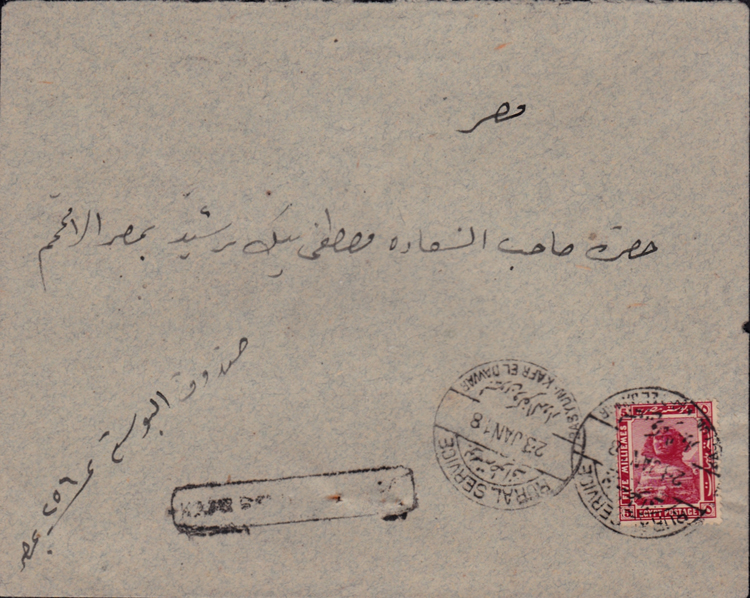 مصر
حضرة صاحب السعاده مصطفى بيك رشيد بمصر الافخم
صندوق البوستة ٢٥٦ بمصر
RURAL SERVICE
BASYUN-KAFR EL DAWAR
23 JAN 18
RURAL SERVICE
FIVE MILLIEMES
EGYPT POSTAGE